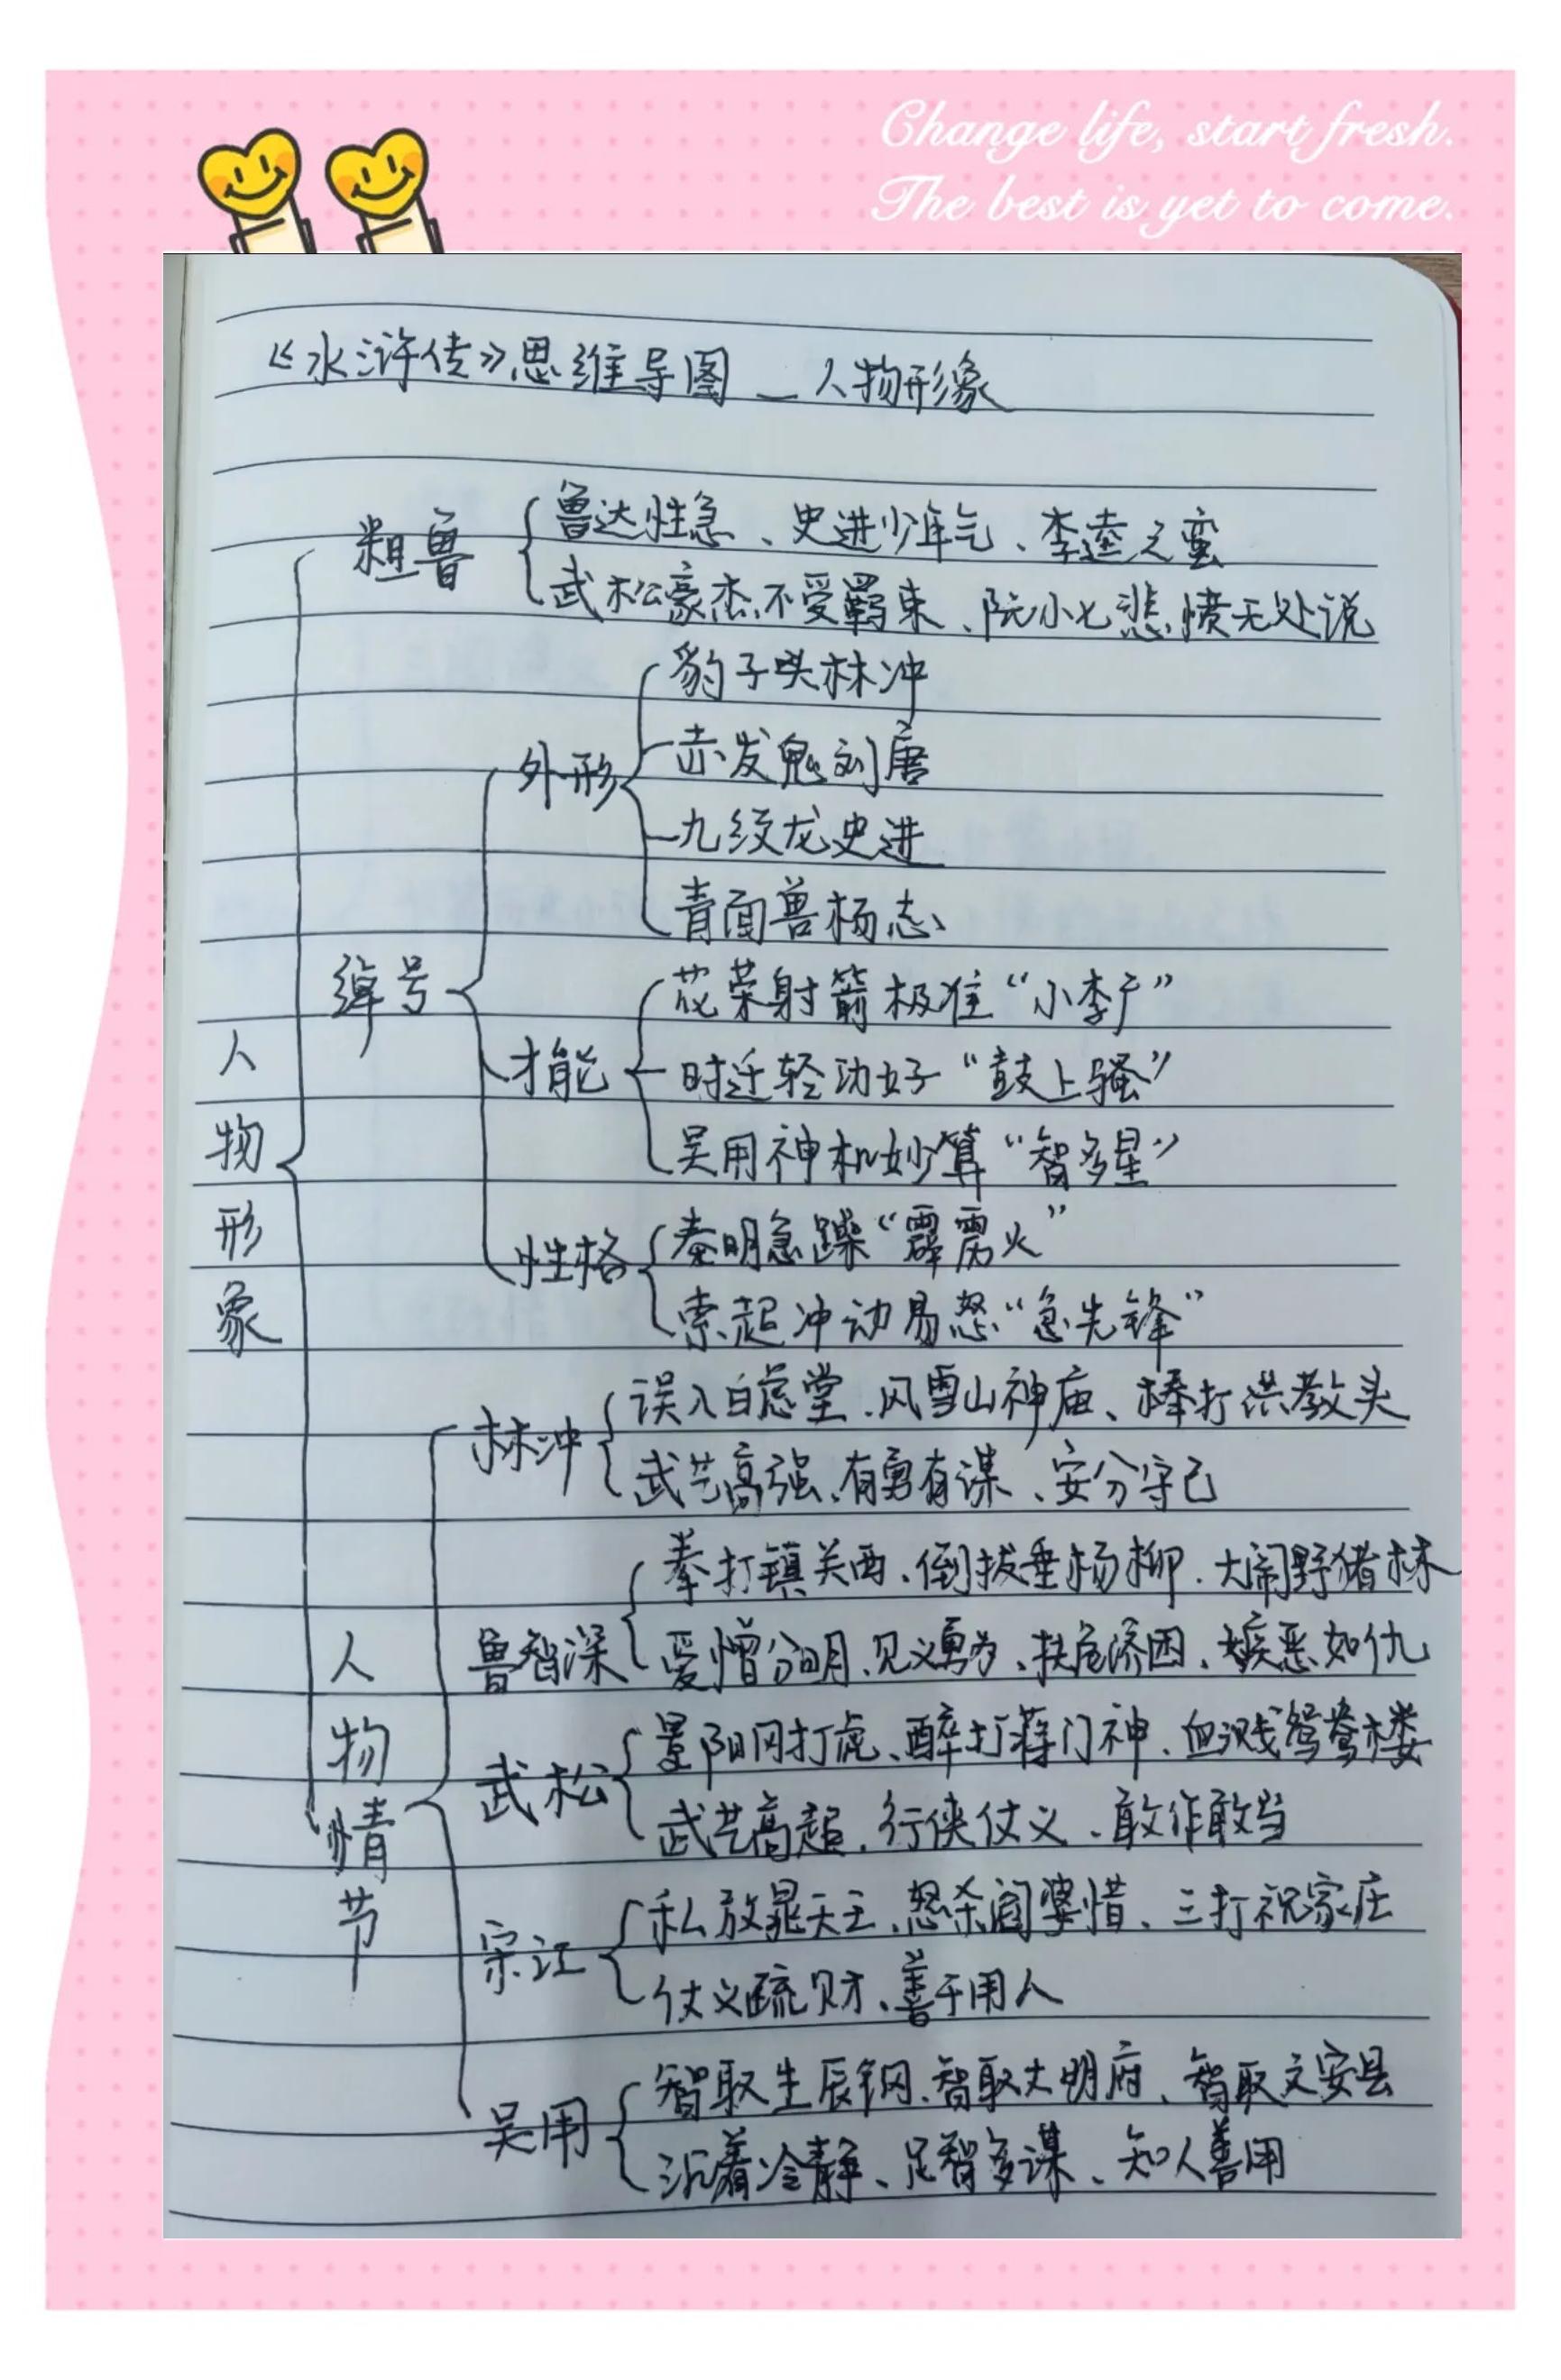 Change life, start fresh.
The best is yet to come.
《水浒传》思维导图 — 人物形象
人物形象
粗鲁
鲁达性急、史进少年气、李逵之蛮
武松豪杰不受羁束、阮小七悲愤无处说
绰号
外形
豹子头林冲
赤发鬼刘唐
九纹龙史进
青面兽杨志
才能
花荣射箭极准“小李广”
时迁轻功好“鼓上骚”
吴用神机妙算“智多星”
性格
秦明急躁“霹雳火”
索超冲动易怒“急先锋”
人物情节
林冲
误入白虎堂、风雪山神庙、棒打洪教头
武艺高强、有勇有谋、安分守己
鲁智深
拳打镇关西、倒拔垂杨柳、大闹野猪林
爱憎分明、见义勇为、扶危济困、嫉恶如仇
武松
景阳冈打虎、醉打蒋门神、血溅鸳鸯楼
武艺高超、行侠仗义、敢作敢当
宋江
私放晁天王、怒杀阎婆惜、三打祝家庄
仗义疏财、善于用人
吴用
智取生辰纲、智取大明府、智取文安县
沉着冷静、足智多谋、知人善用